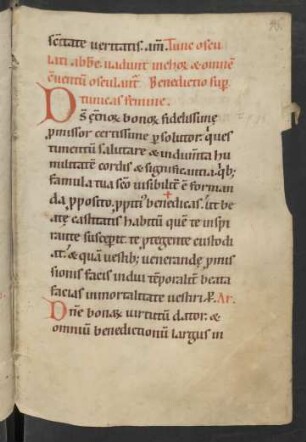 scẽtate veritatis. am̃. Tunc oscu
lati abb̃e. vadunt in chor̃ & om̃ẽ
cũentũ osculant̃. Benedictio sup̃
tunicas femine.
Ds ęt̃norꝝ bonorꝝ fidelissimẽ
ꝓmissor certissime ꝑsolutor. q̃ ves
timentũ salutare & indum̃ta hu
militatẽ cordis & significantia. q̃bꝫ
famula tua sẽo visibilit̃ ẽ forman
da ꝓposito, ꝓpiti⁹ bene✝dicas. Ut be
atę castitatis habitũ quẽ te inspi
rante suscepit. te ꝓtegente custodi
at. & quã vestibꝫ venerandę ꝓmis
sionis facis indui tẽporalit̃. beata
facias inmortalitate vestiri. P̃. At.
Dñe bonarꝝ virtutũ dator. &
omniũ benedictionũ largus in